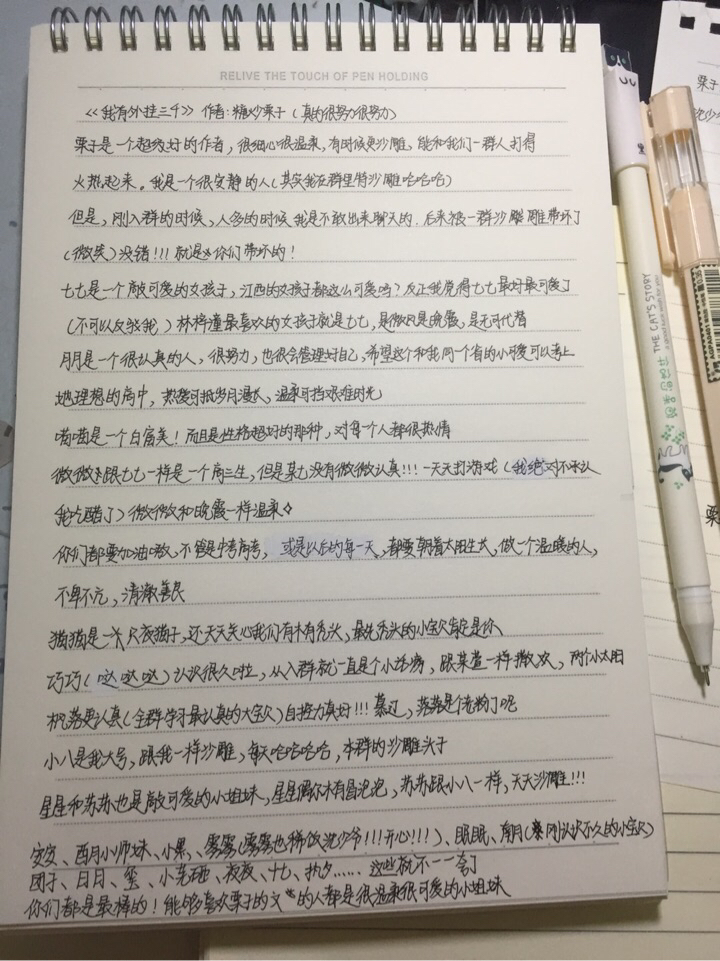 RELIVE THE TOUCH OF PEN HOLDING
《我有外挂三千》作者:糖炒栗子(真的很努力很努力)
栗子是一个超级好的作者,很细心很温柔,有时候更沙雕,能和我们一群人打得
火热起来。我是一个很安静的人(其实我在群里特沙雕哈哈哈)
但是,刚入群的时候,人多的时候我是不敢出来聊天的,后来被一群沙雕雕带坏了
(微笑)没错!!!就是你们带坏的!
七七是一个敲可爱的女孩子,江西的女孩子都这么可爱吗?反正我觉得七七最好最可爱了
(不可以反驳我)林梓潼最喜欢的女孩子就是七七,是微风是晚霞,是无可代替
月月是一个很认真的人,很努力,也很会管理好自己,希望这个和我同一个省的小可爱可以考上
她理想的高中,热爱可抵岁月漫长,温柔可挡艰难时光
喵喵是一个白富美!而且是性格超好的那种,对每个人都很热情
微微跟七七一样是一个高三生,但是某七没有微微认真!!!一天天打游戏(我绝对不承认
我吃醋了)微微微和晚霞一样温柔
你们都要加油嗷,不管是中考高考,或是以后的每一天,都要朝着太阳生长,做一个温暖的人,
不卑不亢,清澈善良
猫猫是一只夜猫子,还天天关心我们有木有秃头,最先秃头的小宝贝肯定是你
巧巧(哒哒哒)认识很久啦,从入群就一直是个小活宝,跟某萱一样撒欢,两个小太阳
枫落更认真(全群学习最认真的大宝贝)自控力真好!!!慕了,落落是个老粉了呢
小八是我大号,跟我一样沙雕,每天哈哈哈哈,本群的沙雕头子
星星和苏苏也是敲可爱的小姐妹,星星偶尔木有冒泡泡,苏苏跟小八一样,天天沙雕!!!
安安、酉月小师妹、小黑、雾雾(雾雾也稀饭沈少爷!!!开心!!!)、眠眠、南月(刚认识不久的小宝贝)
团子、日月、玺、小、夜夜、十七、执夕……这些就不一一夸了
你们都是最棒的!能够喜欢栗子的文的人都是很温柔很可爱的小姐妹
THE CAT'S STORY
栗子